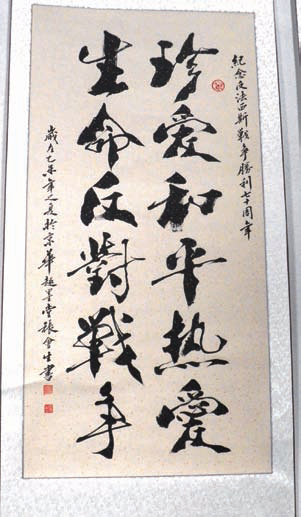 紀念反法西斯戰争勝利七十周年
珍爱和平热爱
生命反對戰争
歲在乙未年之夏於京華趙墨堂張會生書